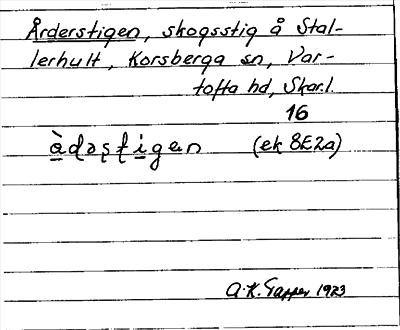 Årderstigen, skogsstig å Stal-
lerhult, Korsberga sn, Var-
tofta hd, Skar.l.
16
àdəşţigən (ek 8E2a)
A.K. Tapper 1923